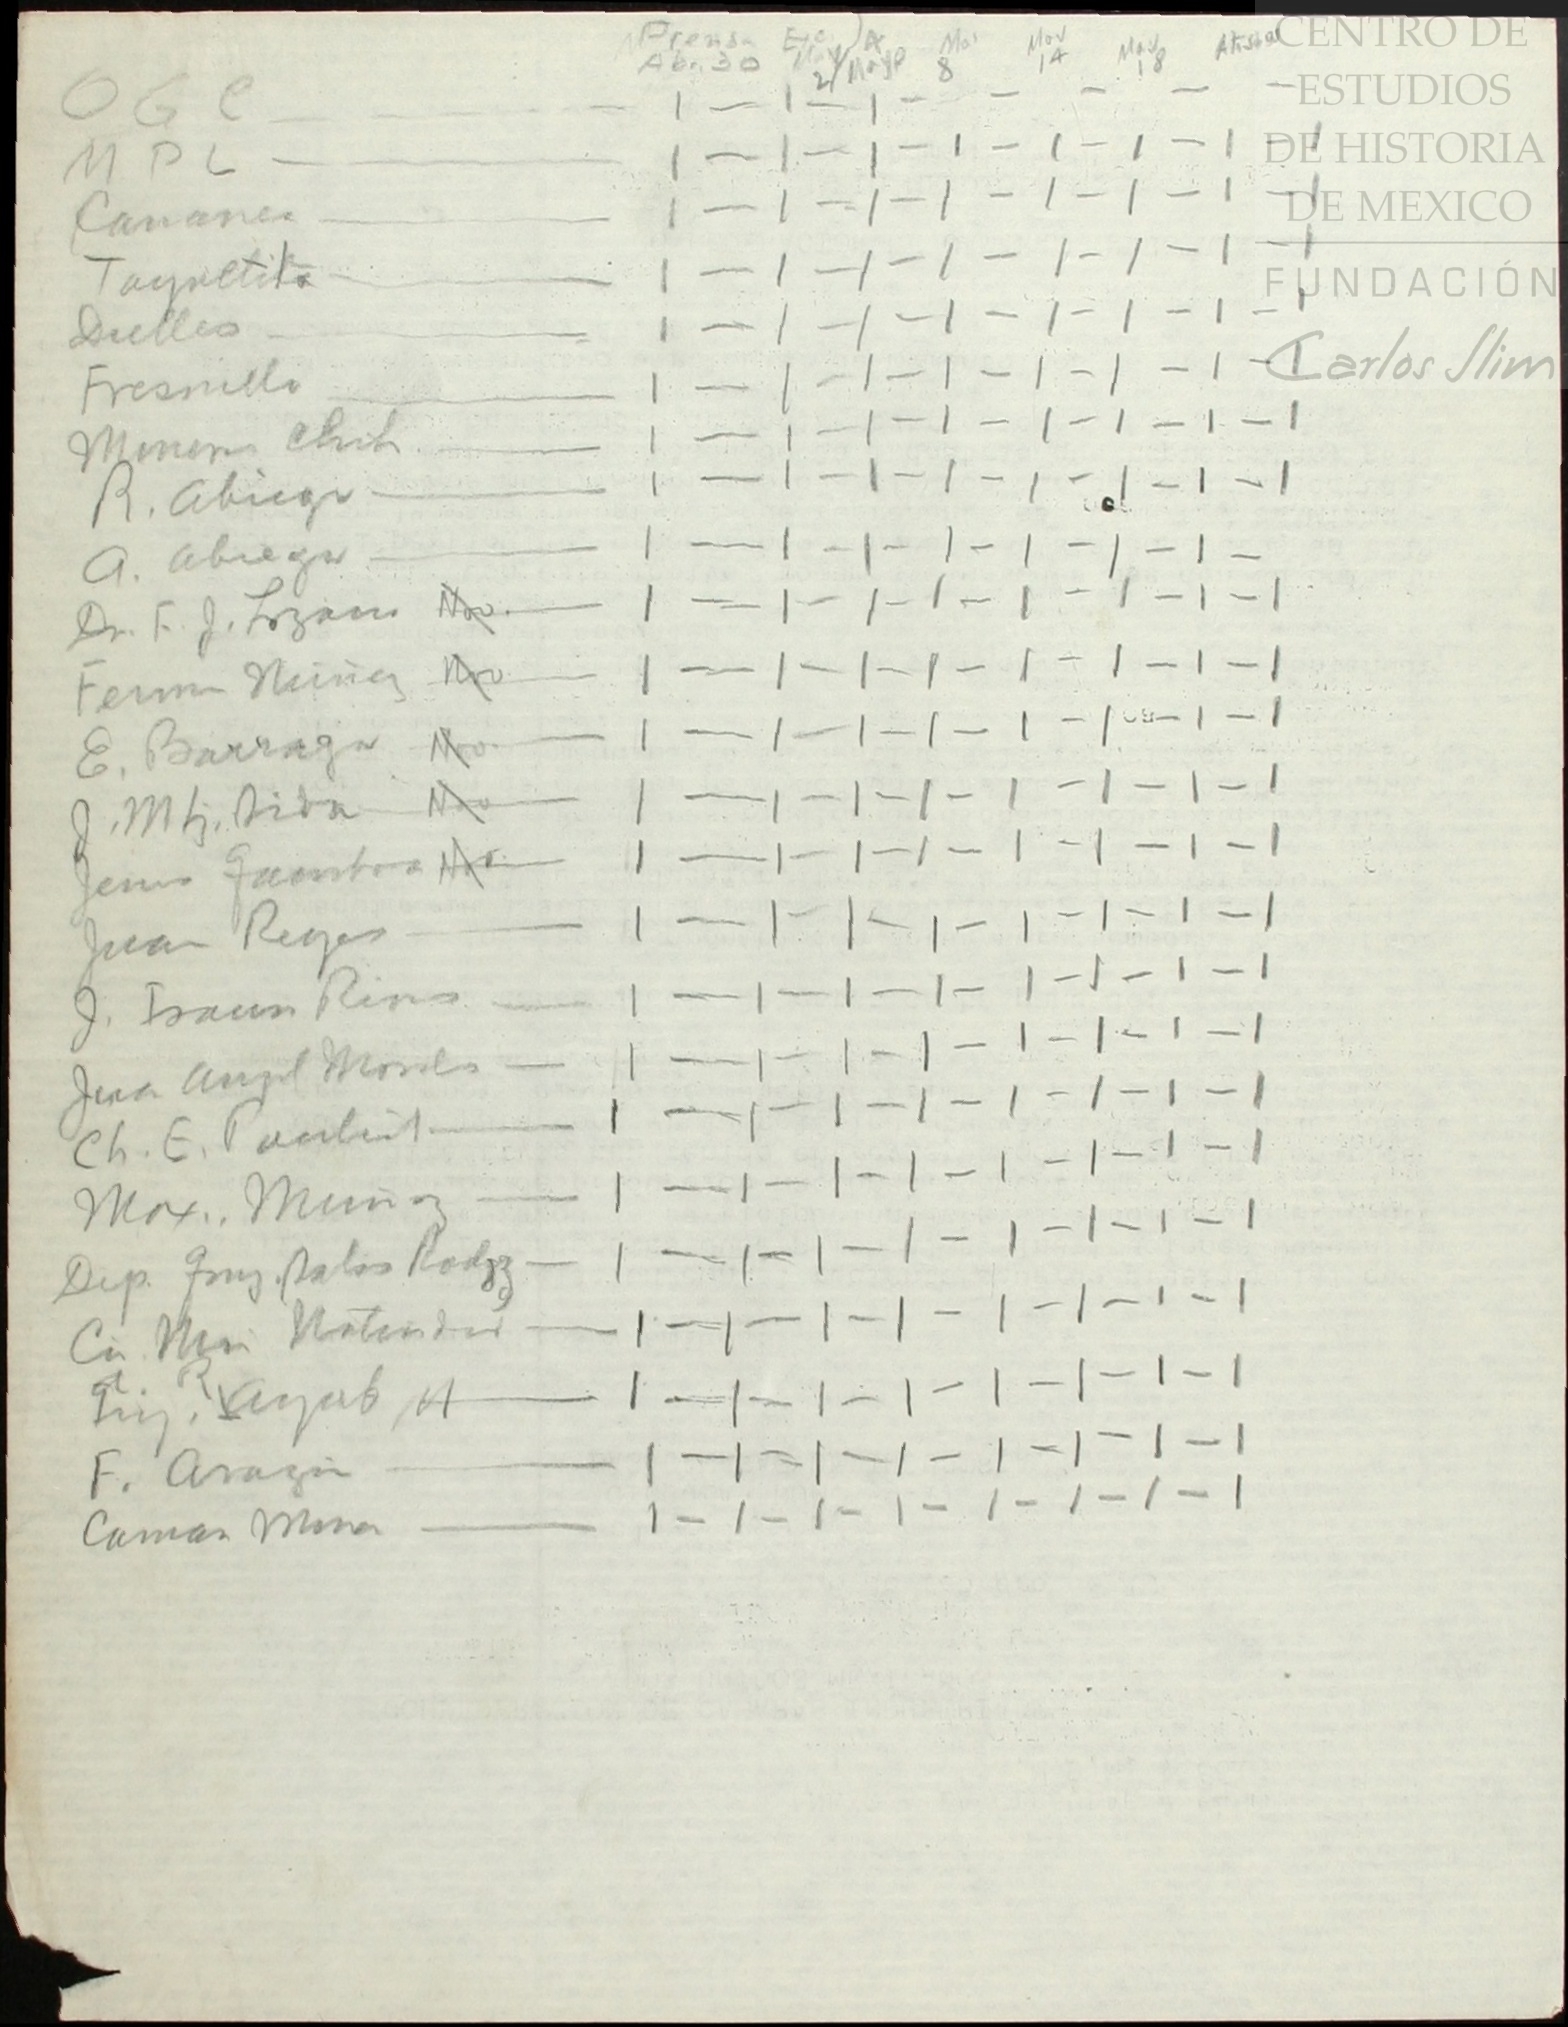 Prensa Exc. A
Abr 30 May 2 May 8 Mar 8 May 14 May 18
O G C
M P L
Cananea
Tayoltita
Dulles
Fresnillo
Minera Chih
R. Abiega
A. Abiega
Dr. F. J. Lozano No.
Fermin Nuñez No
E. Barraga No.
J. Mtz. No
Jesus Gamboa No.
Juan Reyes
J. Rivas
Juan Angel Morales
Ch. E.
Max. Muñoz
Dep. Salas Rodgz
Cia Min Natividad
Ing. R. Ayub H
F. Aragon
Camara Minera
CENTRO DE
ESTUDIOS
DE HISTORIA
DE MEXICO
FUNDACIÓN
Carlos Slim